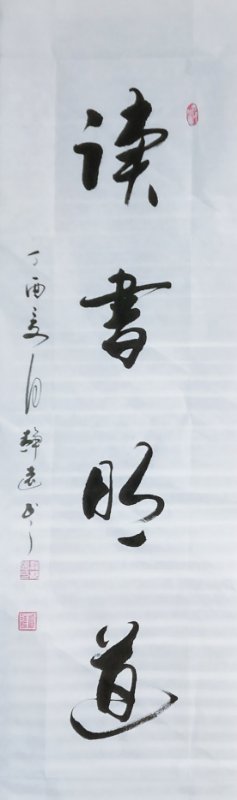 读書明道
丁酉夏月静远书